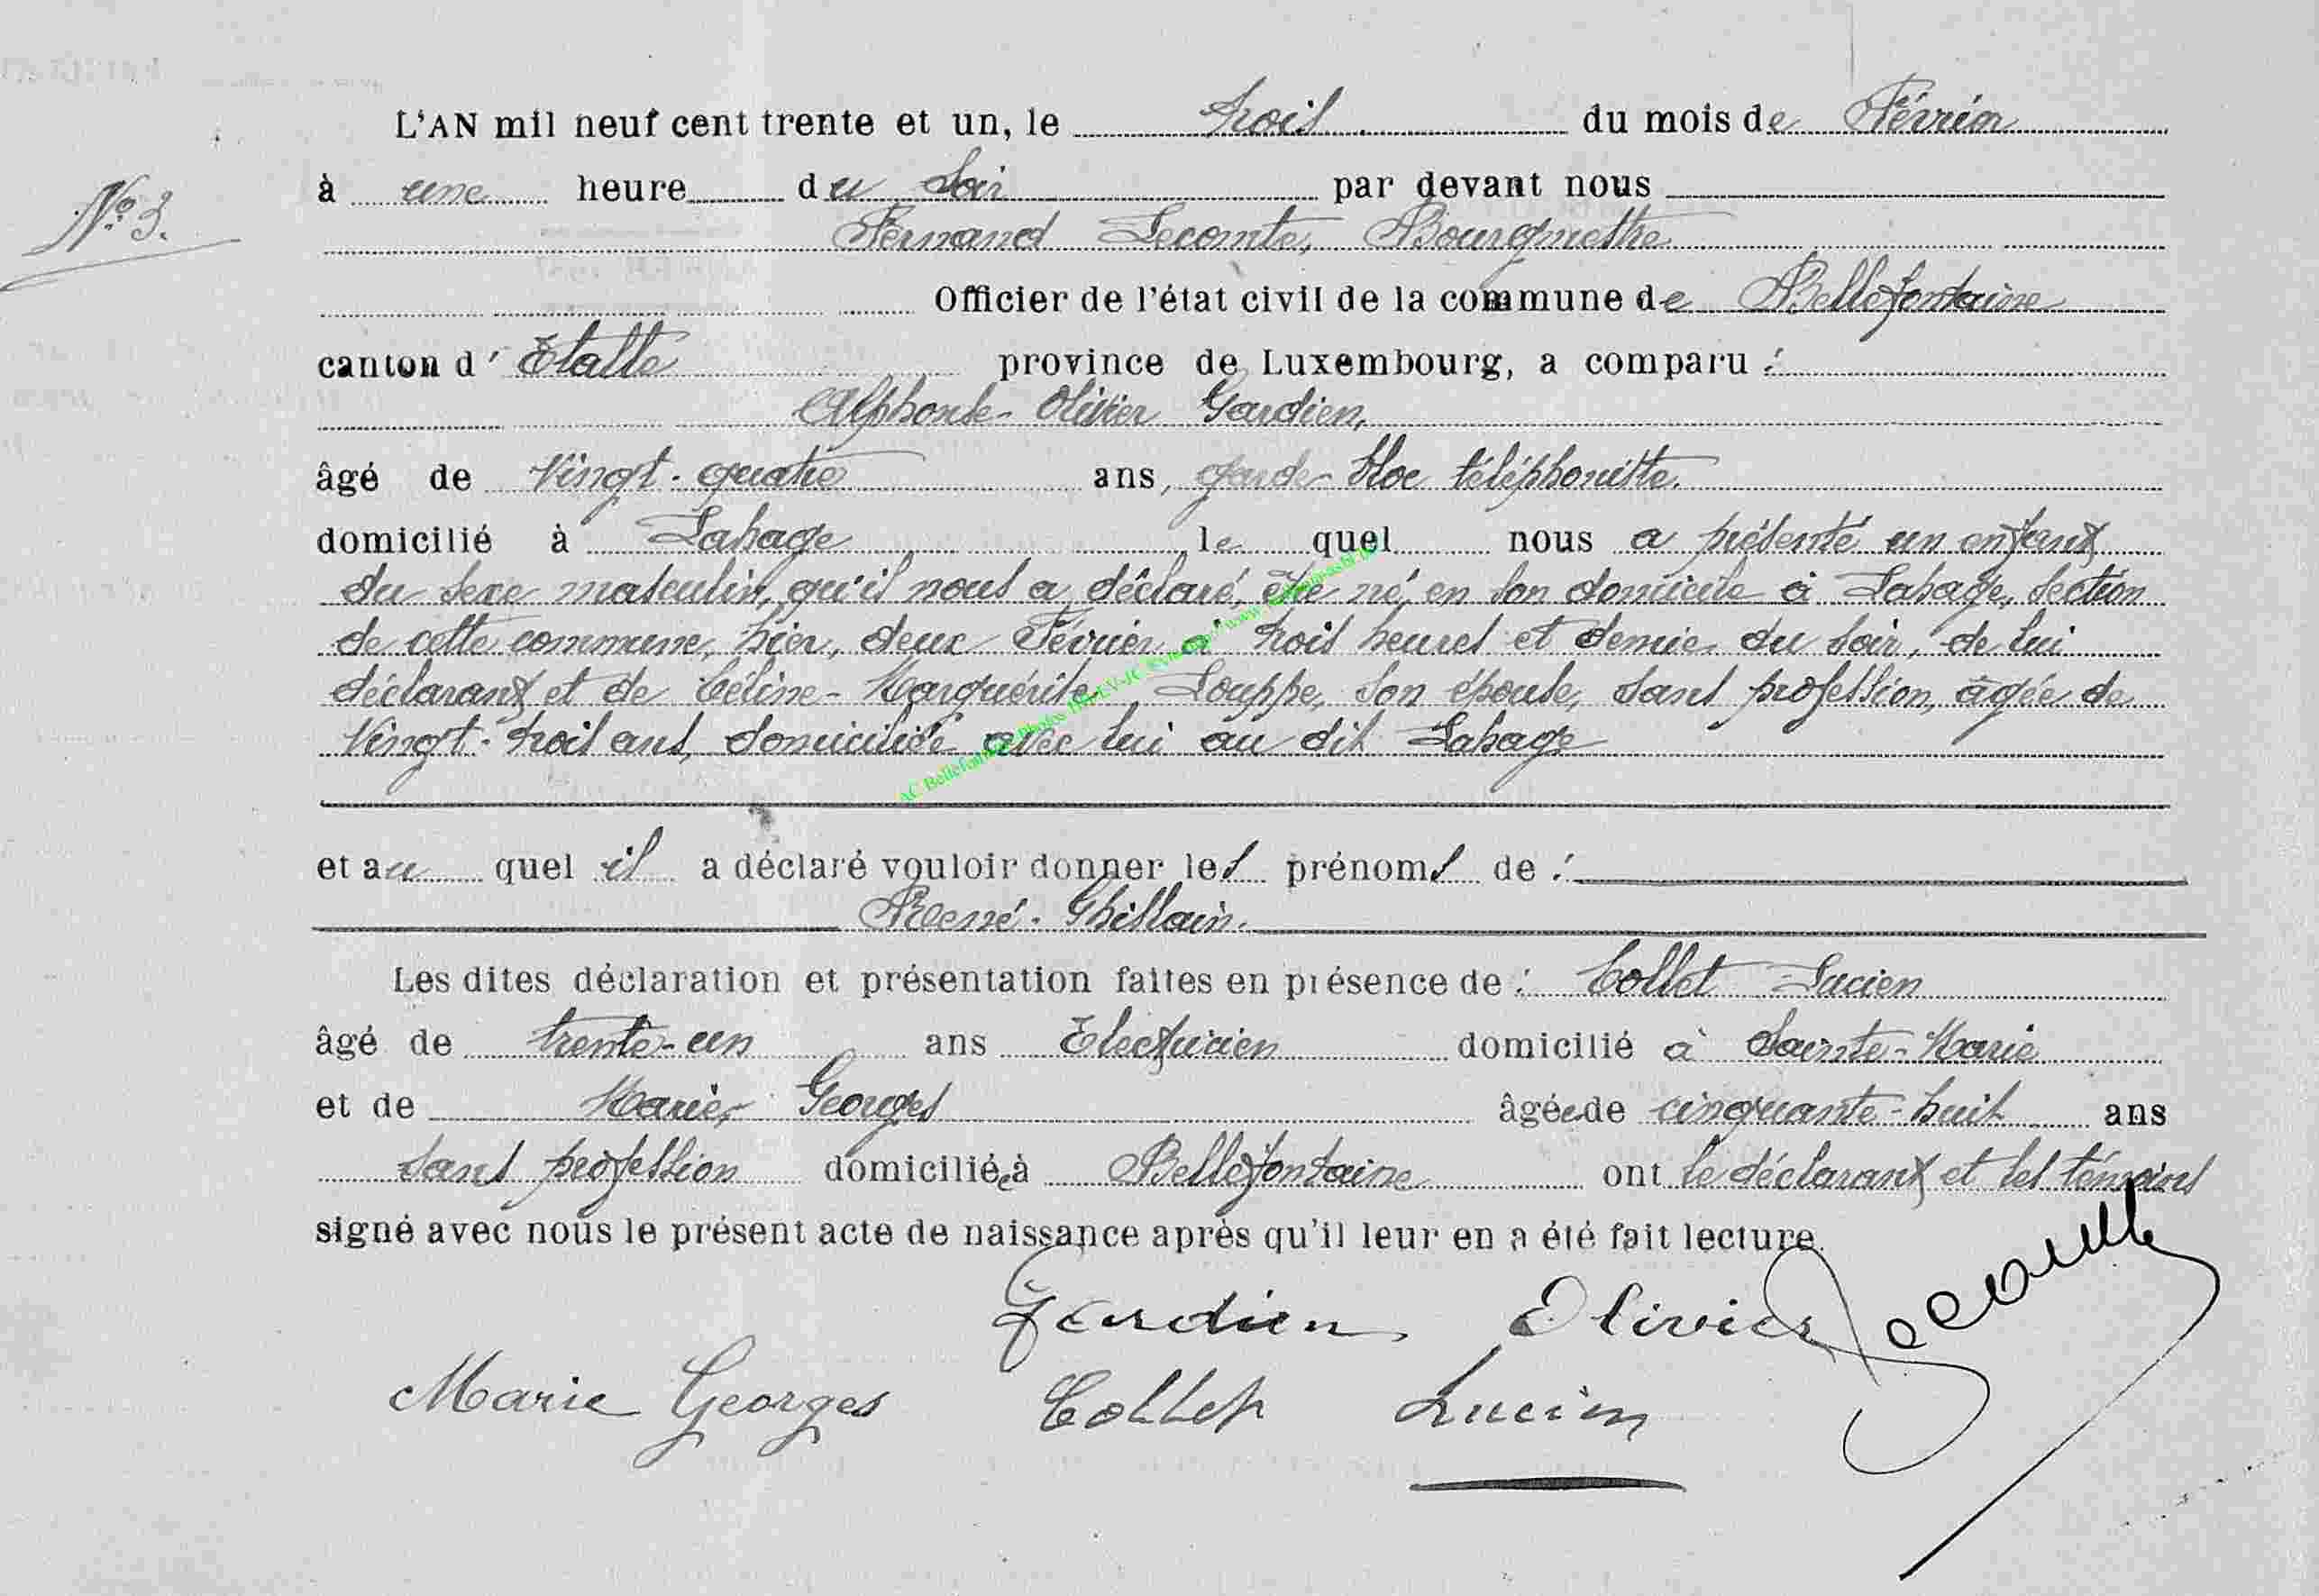 L'AN mil neuf cent trente et un, le trois du mois de Février
à une heure du soir par devant nous
N° 3.
Fernand Lecomte, Bourgmestre
Officier de l'état civil de la commune de Bellefontaine
canton d' Etalle province de Luxembourg, a comparu :
Alphonse-Olivier Gardien,
âgé de Vingt-quatre ans, garde-bloc téléphoniste.
domicilié à Lahage le quel nous a présenté un enfant
du sexe masculin, qu'il nous a déclaré, être né, en son domicile à Lahage, section
de cette commune, hier, deux Février à trois heures et demie du soir, de lui
déclarant et de Céline-Marguérite Louppe, son épouse, sans profession, âgée de
Vingt-trois ans, domiciliée avec lui au dit Lahage
et au quel il a déclaré vouloir donner les prénoms de :
René-Ghislain.
Les dites déclaration et présentation faites en présence de : Collet Lucien
âgé de trente-un ans Electricien domicilié à Sainte-Marie
et de Marie, Georges âgée de cinquante-huit ans
sans profession domiciliée à Bellefontaine ont le déclarant et les témoins
signé avec nous le présent acte de naissance après qu'il leur en a été fait lecture.
Gardien Olivier Lecomte
Marie Georges Collet Lucien
AC Bellefontaine